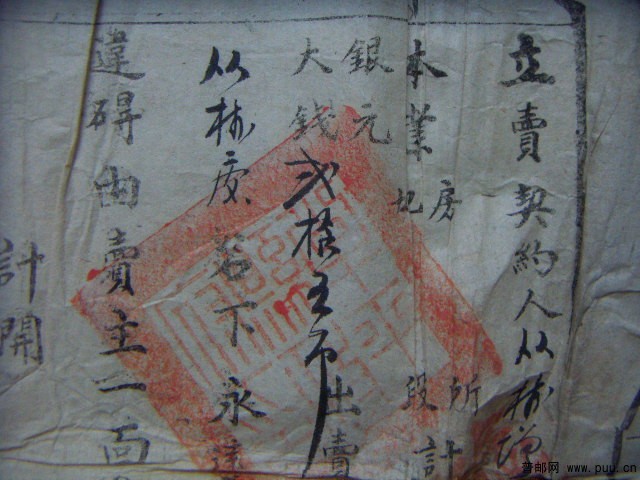 立賣契約人从
本業房地所段計
銀元大錢弍拾五吊出賣
从 名下永遠
違碍由賣主一面
計開
普邮网 www.puu.cn